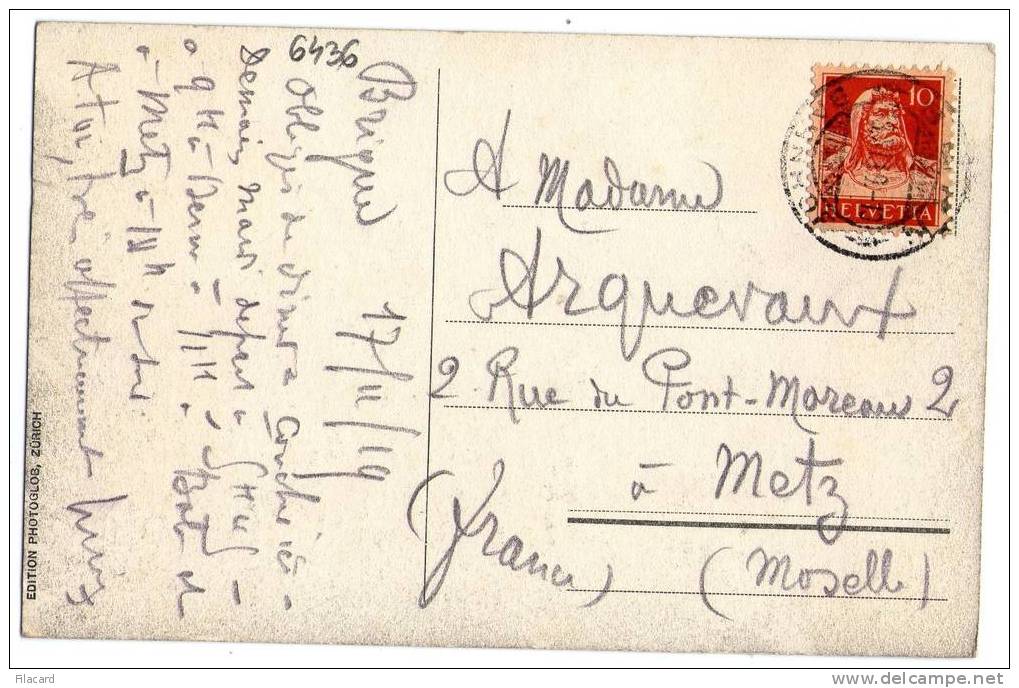 6436
Brigue 17/11/19
Obligés de dîner & coucher ici -
Demain mardi départ à
9 H à Berne - Bale et
à Metz à
A toi, très affectueusement
EDITION PHOTOGLOB, ZÜRICH
10
HELVETIA
A Madame
Arquevaux
2 Rue du Pont-Moreau 2
à Metz
(France) (Moselle)
Filacard
www.delcampe.net